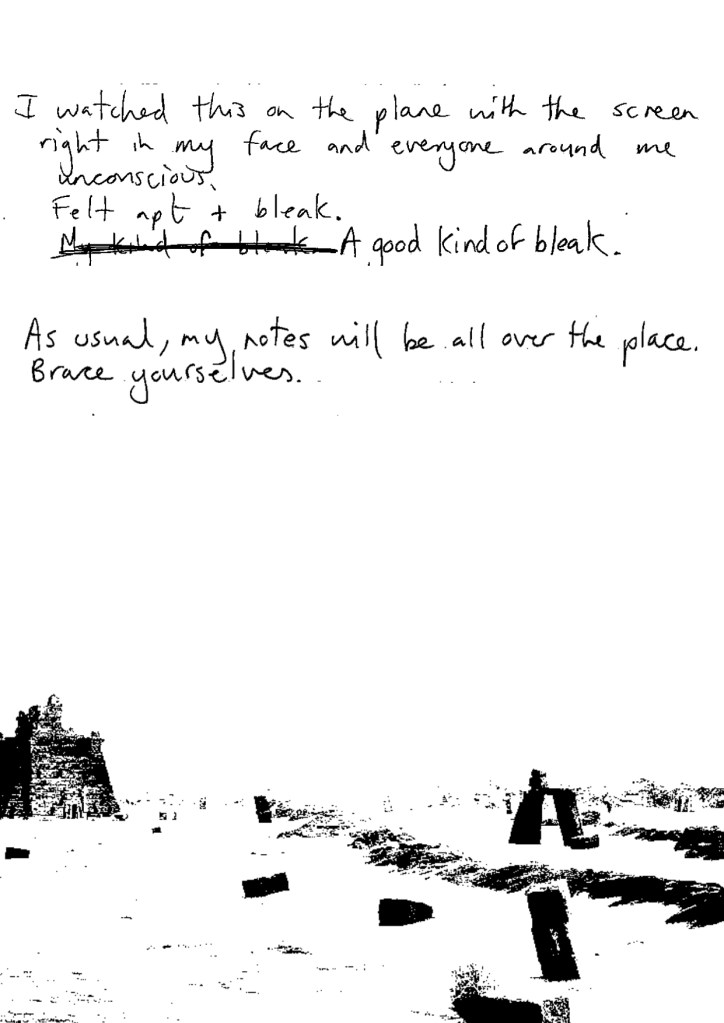 I watched this on the plane with the screen
right in my face and everyone around me
unconscious.
Felt apt + bleak.
My kind of bleak. A good kind of bleak.
As usual, my notes will be all over the place.
Brace yourselves.